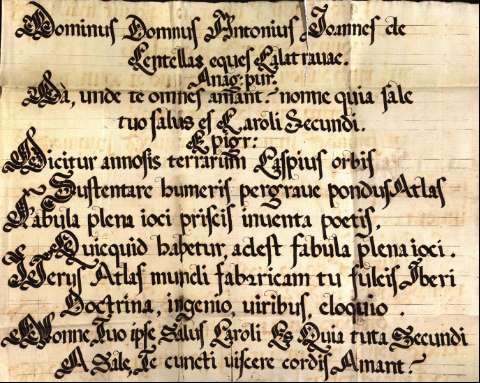 Dominus Domnus Antonius Joannes de
Centellas eques Calatravae.
Anag: pur.
Dâ, unde te omnes amant? nonne quia sale
tuo salus es Caroli Secundi.
Epigr:
Dicitur annosis terrarum Caspius orbis
Sustentare humeris pergraue pondus Atlas
Fabula plena ioci priscis inuenta poetis,
Quicquid habetur, adest fabula plena ioci.
Verus Atlas mundi fabricam tu fulcis Iberi
Doctrina, ingenio, uiribus, eloquio.
Nonne Tuo ipse Salus Caroli Es Quia tuta Secundi
A Sale, Te cuncti viscere cordis Amant?